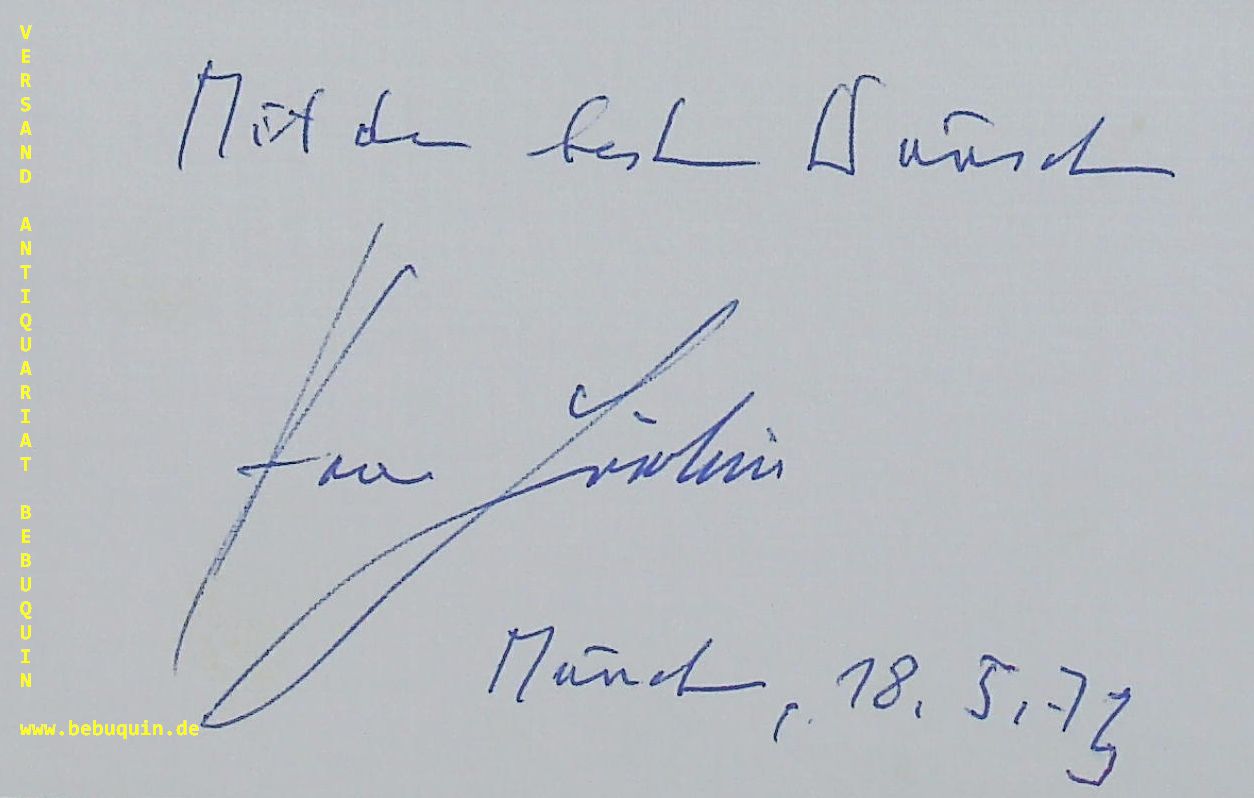 VERSAND ANTIQUARIAT BEBUQUIN
Mit den besten Wünschen
München, 18. 5. 79
www.bebuquin.de